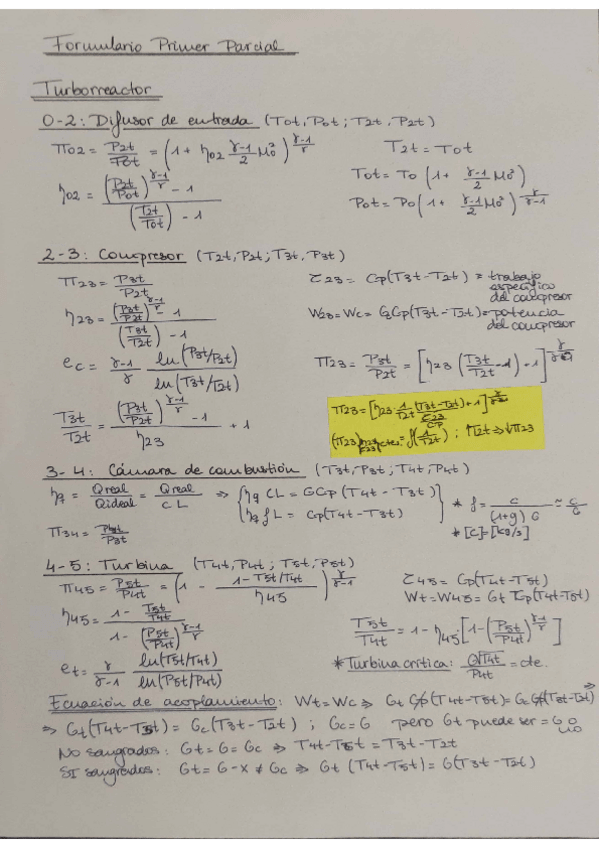 Formulario Primer Parcial
Turborreactor
0-2: Difusor de entrada (T0t, P0t; T2t, P2t)
Π02 = P2t/P0t = (1 + η02 (γ-1)/2 M0²)^((γ-1)/γ)    T2t = T0t
η02 = ((P2t/P0t)^((γ-1)/γ) - 1)/((T2t/T0t) - 1)    T0t = T0 (1 + (γ-1)/2 M0²)
P0t = P0 (1 + (γ-1)/2 M0²)^(γ/(γ-1))
2-3: Compresor (T2t, P2t; T3t, P3t)
Π23 = P3t/P2t    τ23 = Cp(T3t - T2t) = trabajo específico del compresor
η23 = ((P3t/P2t)^((γ-1)/γ) - 1)/((T3t/T2t) - 1)    W23 = Wc = GcCp(T3t - T2t) = potencia del compresor
ec = (γ-1)/γ ln(P3t/P2t)/ln(T3t/T2t)    Π23 = P3t/P2t = [η23 (T3t/T2t - 1) + 1]^(γ/(γ-1))
T3t/T2t = ((P3t/P2t)^((γ-1)/γ) - 1)/η23 + 1
Π23 = [η23 · 1/T2t (T3t - T2t) + 1]^(γ/(γ-1))
τ23/Cp
(Π23) η23 τ23 ctes. = f(1/T2t) ; ↑T2t ⇒ ↓Π23
3-4: Cámara de combustión (T3t, P3t; T4t, P4t)
ηq = Qreal/Qideal = Qreal/cL ⇒ { ηq CL = GCp (T4t - T3t)
ηq f L = Cp(T4t - T3t) }    * f = c/((1+g) G) ≈ c/G
Π34 = P4t/P3t    * [C] = [kg/s]
4-5: Turbina (T4t, P4t; T5t, P5t)
Π45 = P5t/P4t = (1 - (1 - T5t/T4t)/η45)^(γ/(γ-1))    τ45 = Cp(T4t - T5t)
Wt = W45 = Gt Cp(T4t - T5t)
η45 = (1 - T5t/T4t)/(1 - (P5t/P4t)^((γ-1)/γ))    T5t/T4t = 1 - η45 [1 - (P5t/P4t)^((γ-1)/γ)]
et = γ/(γ-1) ln(T5t/T4t)/ln(P5t/P4t)    * Turbina crítica: G√T4t/P4t = cte.
Ecuación de acoplamiento: Wt = Wc ⇒ Gt Cp(T4t - T5t) = Gc Cp(T3t - T2t) ⇒
⇒ Gt(T4t - T5t) = Gc(T3t - T2t) ; Gc = G pero Gt puede ser = G o no
NO sangrados: Gt = G = Gc ⇒ T4t - T5t = T3t - T2t
SI sangrados: Gt = G - X ≠ Gc ⇒ Gt (T4t - T5t) = G(T3t - T2t)